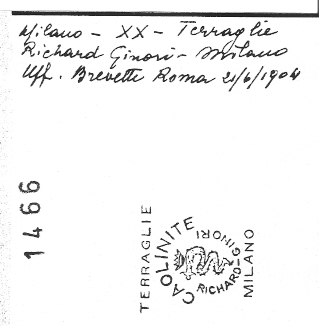 Milano - XX - Terraglie
Richard Ginori - Milano
Uff. Brevetti Roma 21/6/1904
1466
TERRAGLIE
CAOLINITE
RICHARD-GINORI
MILANO